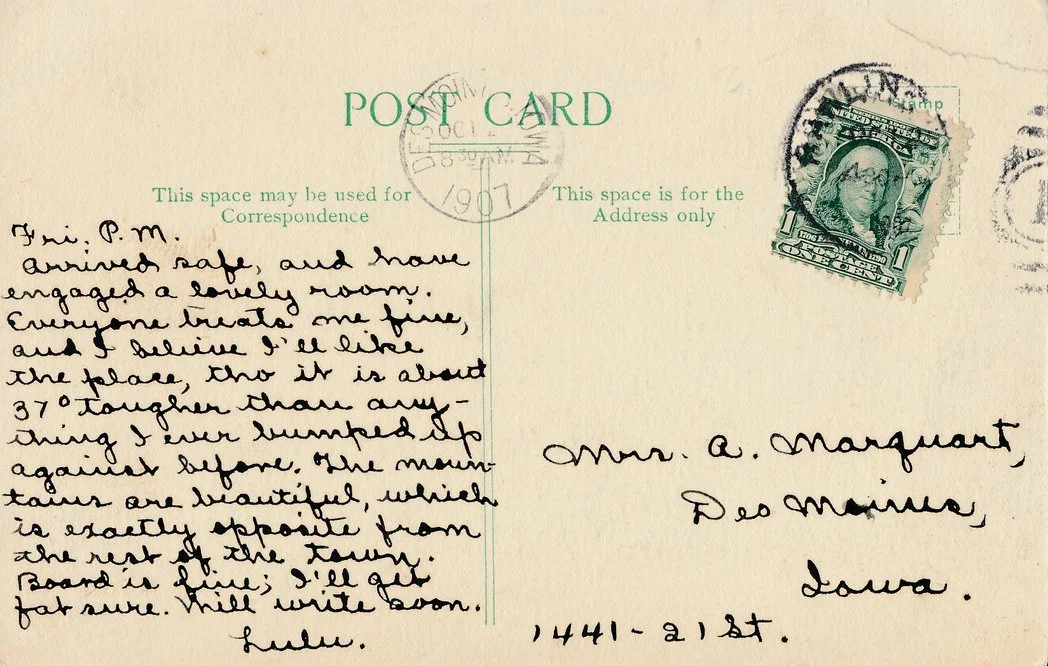 POST CARD
DES MOINES IOWA
OCT 2
8 30 AM
1907
RAWLINS
Stamp
This space may be used for
Correspondence
This space is for the
Address only
1
ONE CENT
1
Fri. P.M.
Arrived safe, and have
engaged a lovely room.
Everyone treats me fine,
and I believe I'll like
the place, tho it is about
37° tougher than any-
thing I ever bumped up
against before. The moun-
tains are beautiful, which
is exactly opposite from
the rest of the town.
Board is fine; I'll get
fat sure. Will write soon.
Lulu.
Mrs. A. Marquart,
Des Moines,
Iowa.
1441-21 St.